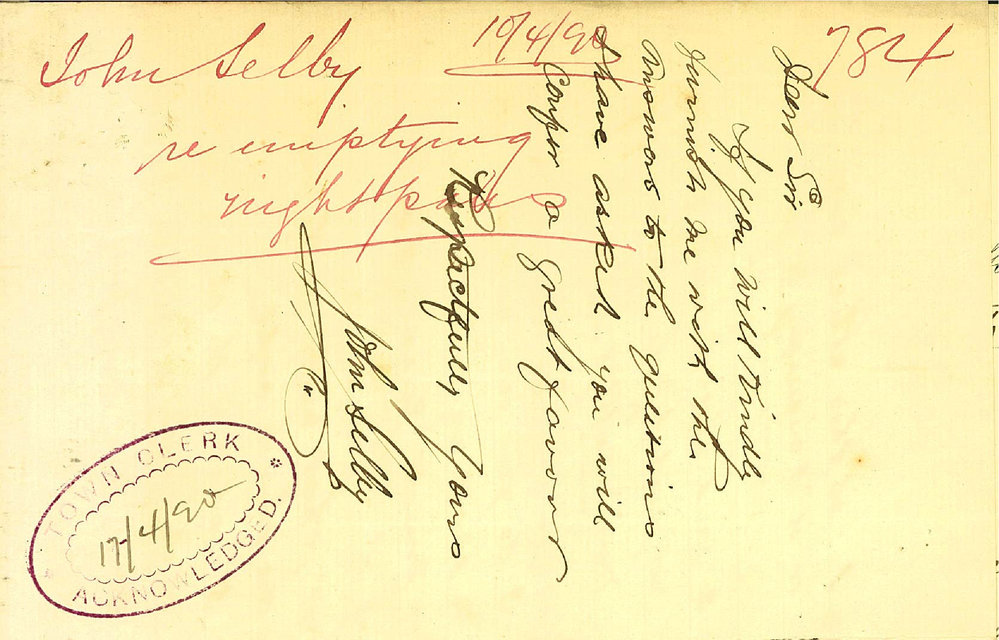 784
10/4/90
John Selby
re emptying
nightpans
Dear Sir
If you will kindly
furnish me with the
Answers to the questions
I have asked you will
confer a great favour
Respectfully Yours
John Selby
TOWN CLERK
17/4/90
ACKNOWLEDGED.